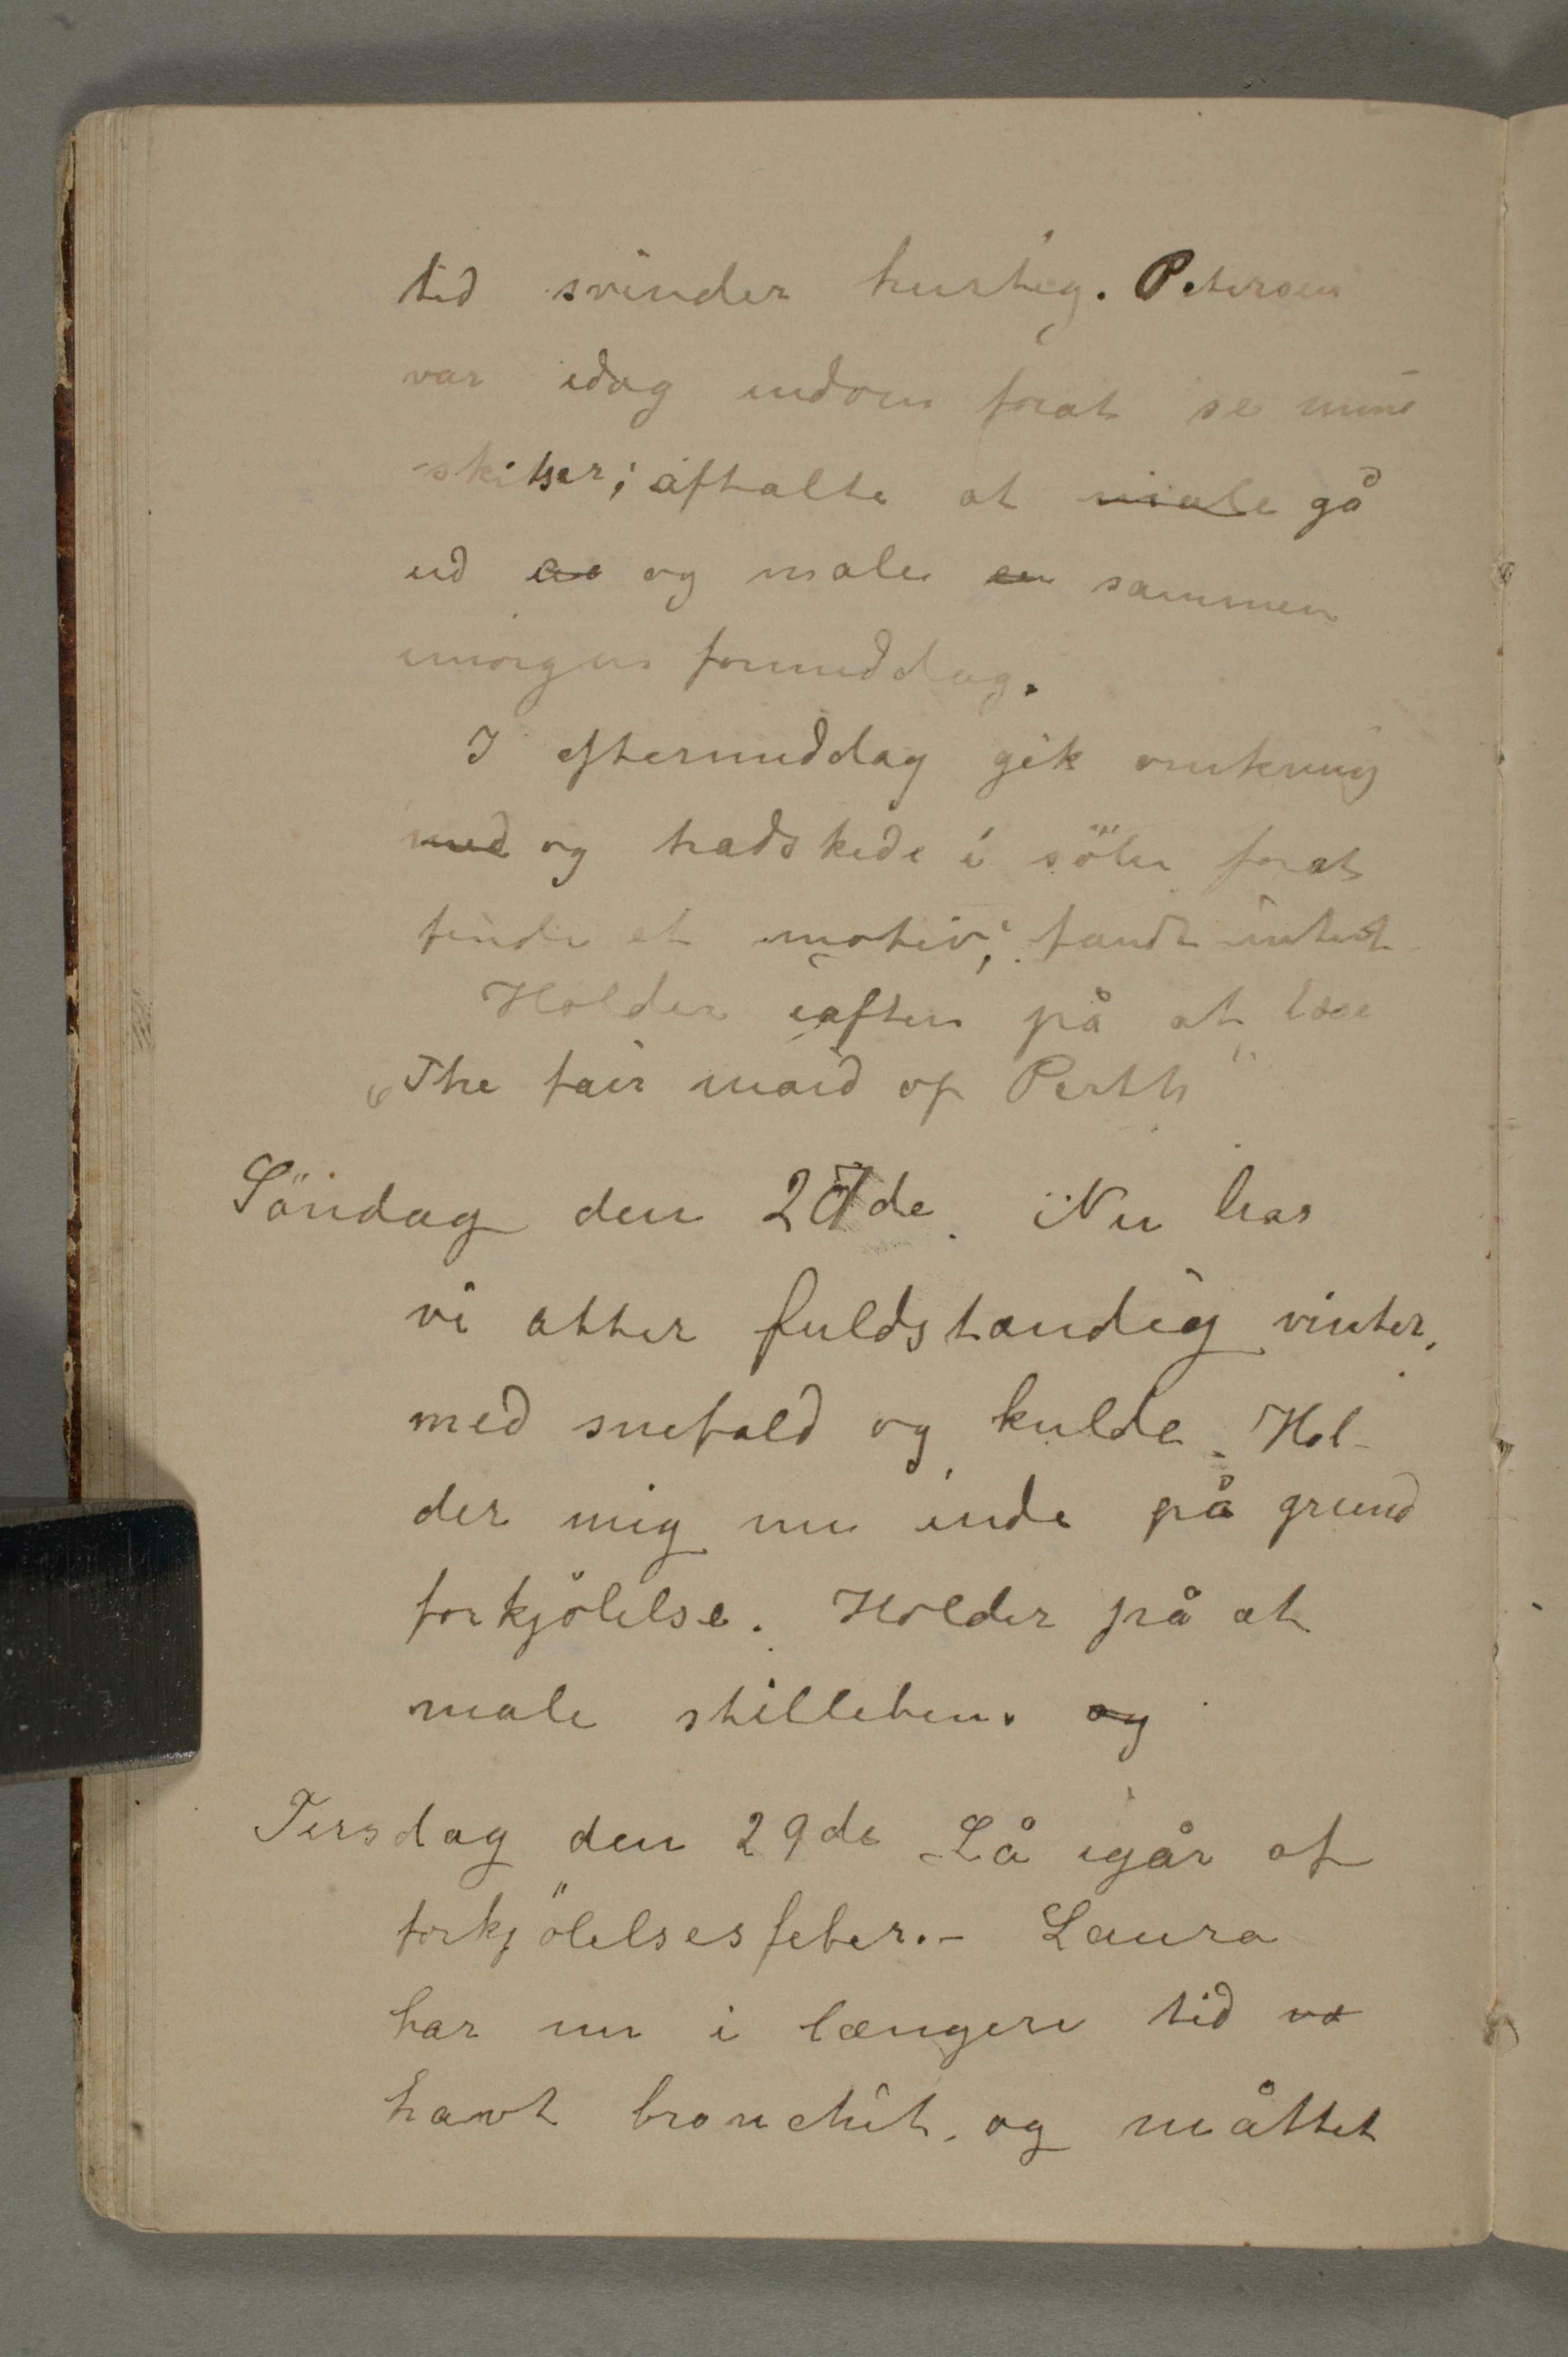 tid svinder hurtig. Petersen
var idag indom forat se mine
skitser; aftalte at male gå
ud ao og male en sammen
imorgen formiddag.
I eftermiddag gik omkring
med og tradskede i sölen forat
finde et motiv; fandt intet
Holder iaften på at læse
„The fair maid of Perth"
Söndag den 27de. Nu har
vi atter fuldstændig vinter,
med snefald og kulde. Hol-
der mig nu inde på grund
forkjölelse. Holder på at
male stilleben. og
Tirsdag den 29de Lå igår af
forkjölelsesfeber.- Laura
har nu i længere tid va
havt bronchit. og måttet